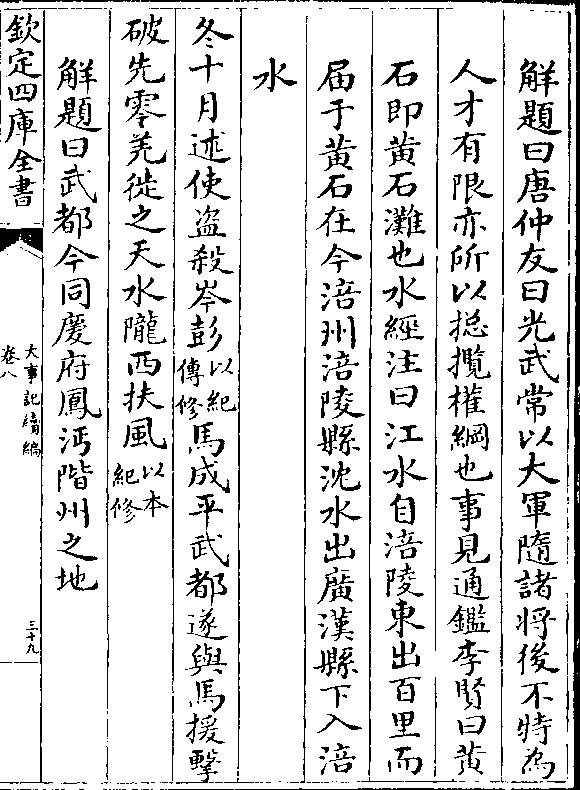 解題曰唐仲友曰光武常以大軍隨諸将後不特為
人才有限亦所以捴攬權綱也事見通鑑李賢曰黄
石即黄石灘也水經注曰江水自涪陵東出百里而
届于黄石在今涪州涪陵縣沈水出廣漢縣下入涪
水
冬十月述使盗殺岑彭以紀傳修馬成平武都遂與馬援擊
破先零羌徙之天水隴西扶風以本紀修
解題曰武都今同慶府鳳沔階州之地
欽定四庫全書
大事記續編
卷八
三十九